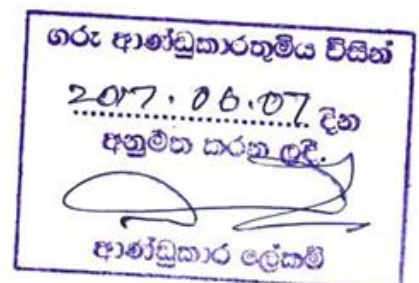 ගරු ආණ්ඩුකාරතුමිය විසින්
2017.06.07 දින
අනුමත කරන ලදී.
ආණ්ඩුකාර ලේකම්